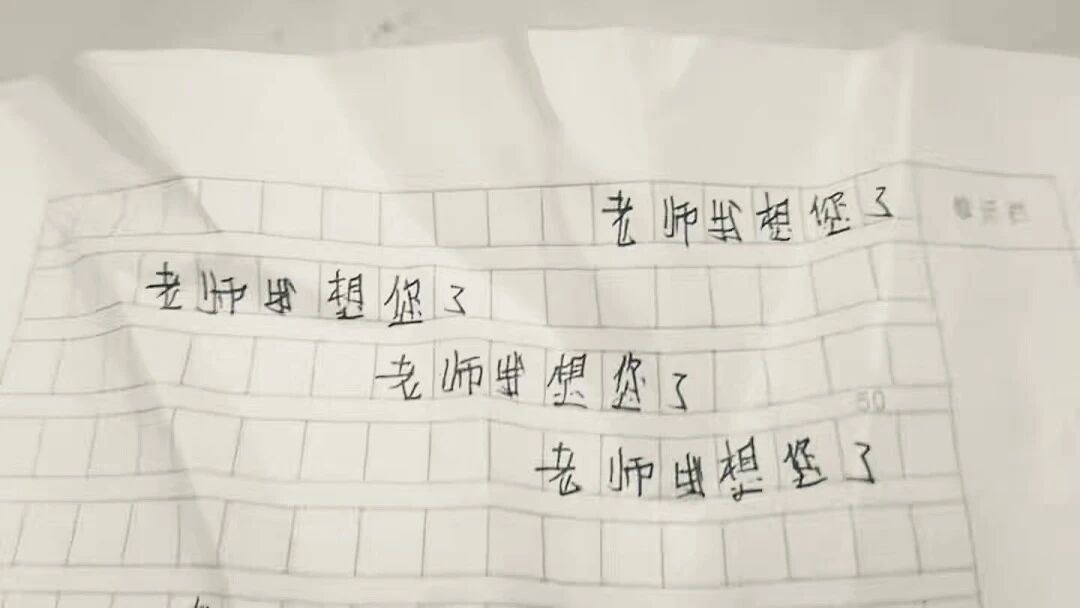 老师我想您了
老师我想您了
老师我想您了
50
老师我想您了